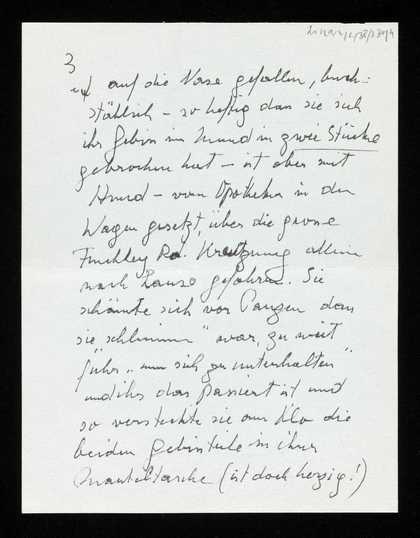 3
ist auf die Nase gefallen, buch=
stäblich – so heftig dass sie sich
ihr Gebiss im Mund in zwei Stücke
gebrochen hat – ist aber mit
Hund – vom Apotheker in den
Wagen gesetzt, über die grosse
Finchley Rd. Kreuzung allein
nach Hause gefahren. Sie
schämte sich vor dass
sie "schlimm" war, zu weit
fuhr "um sich zu unterhalten"
und ihr das passiert ist und
so versteckte sie am Klo die
beiden Gebissteile in ihrer
Manteltasche (ist doch herzig!)